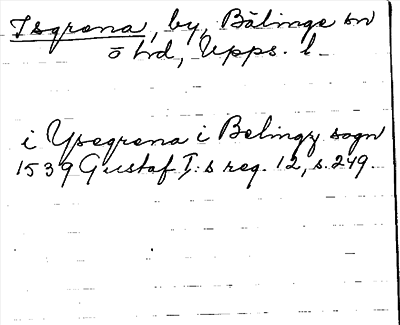 Isgrena, by, Bälinge sn
ö hd, Upps. l
i Ysegrena i Belingz sogn
1539 Gustaf I:s reg. 12, s. 249.